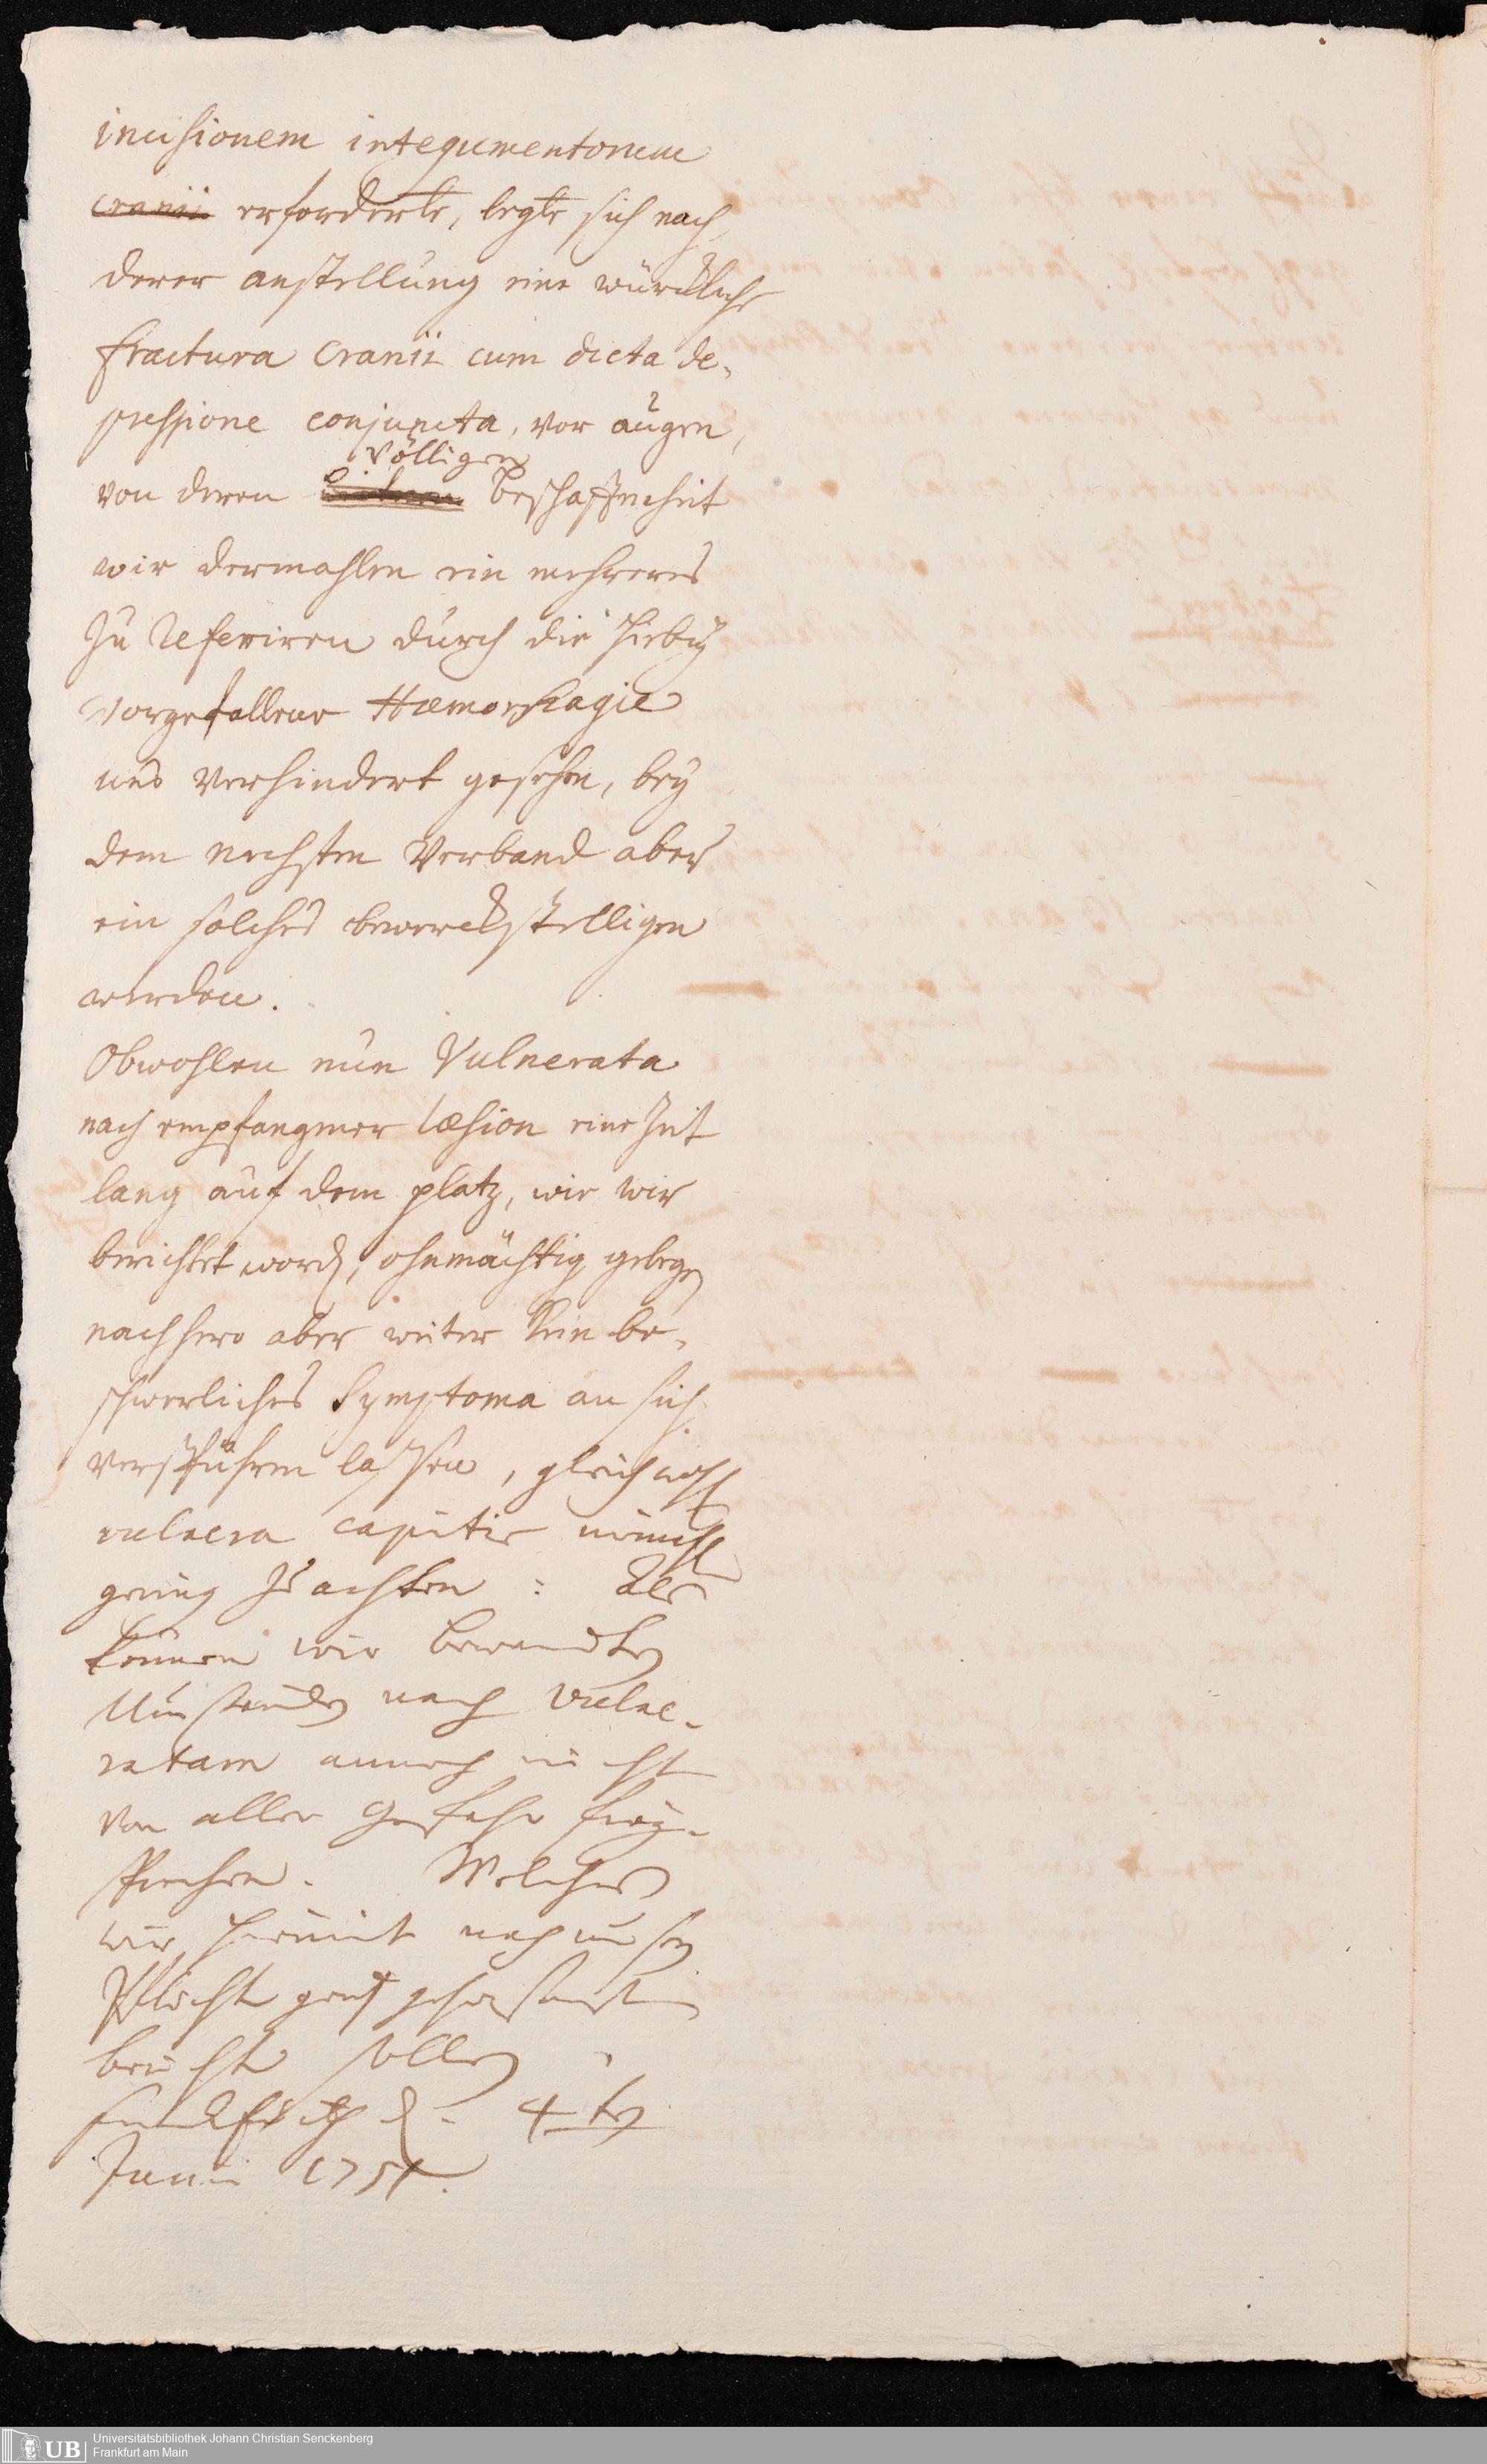 incisionem integumentorum
cranii erforderte, legte sich nach
derer anstellung eine würckliche
fractura Cranii cum dicta de-
pressione conjuncta, vor augen,
völligen
von deren beschaffenheit
wir dermahlen ein mehreres
zu referiren durch die hiebey
vorgefallene Hæmorrhagie
uns verhindert gesehen, bey
dem nechsten Verband aber
ein solches bewerckstelligen
werden.
Obwohlen nun Vulnerata
nach empfangener læsion eine Zeit
lang auf dem platz, wie wir
berichtet word, ohnmächtig gelegen
nachhero aber weiter kein be-
schwerliches Symptoma an sich
verspühren lassen, gleichwohl
vulnera capitis niemahl
gering zu achten : Als
können wir bewandten
Umständen nach Vulne-
ratam annoch nicht
von aller Gefahr frey-
sprechen. Welches
wir hiemit nach unsern
Pflicht
bericht sollen
4ten
Junii 1751.
Universitätsbibliothek Johann Christian Senckenberg
Frankfurt am Main
UB